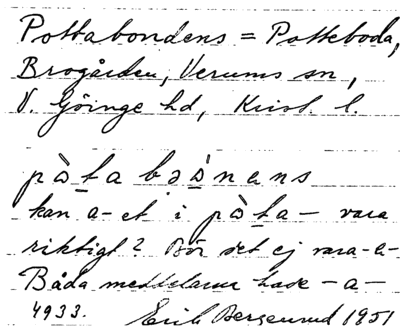 Pottabondens = Potteboda,
Brogården, Verums sn,
V. Göinge hd, Krist. l.
pò̱ta bəò̱nens
kan a- et i pò̱ta - vara
riktigt? Bör det ej vara -e-
Båda meddelarna hade - a -
4933. Erik Bergenrud 1951